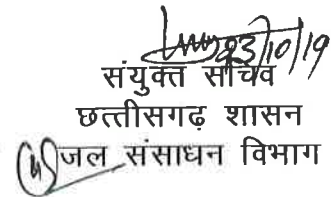 23/10/19
संयुक्त सचिव
छत्तीसगढ़ शासन
जल संसाधन विभाग